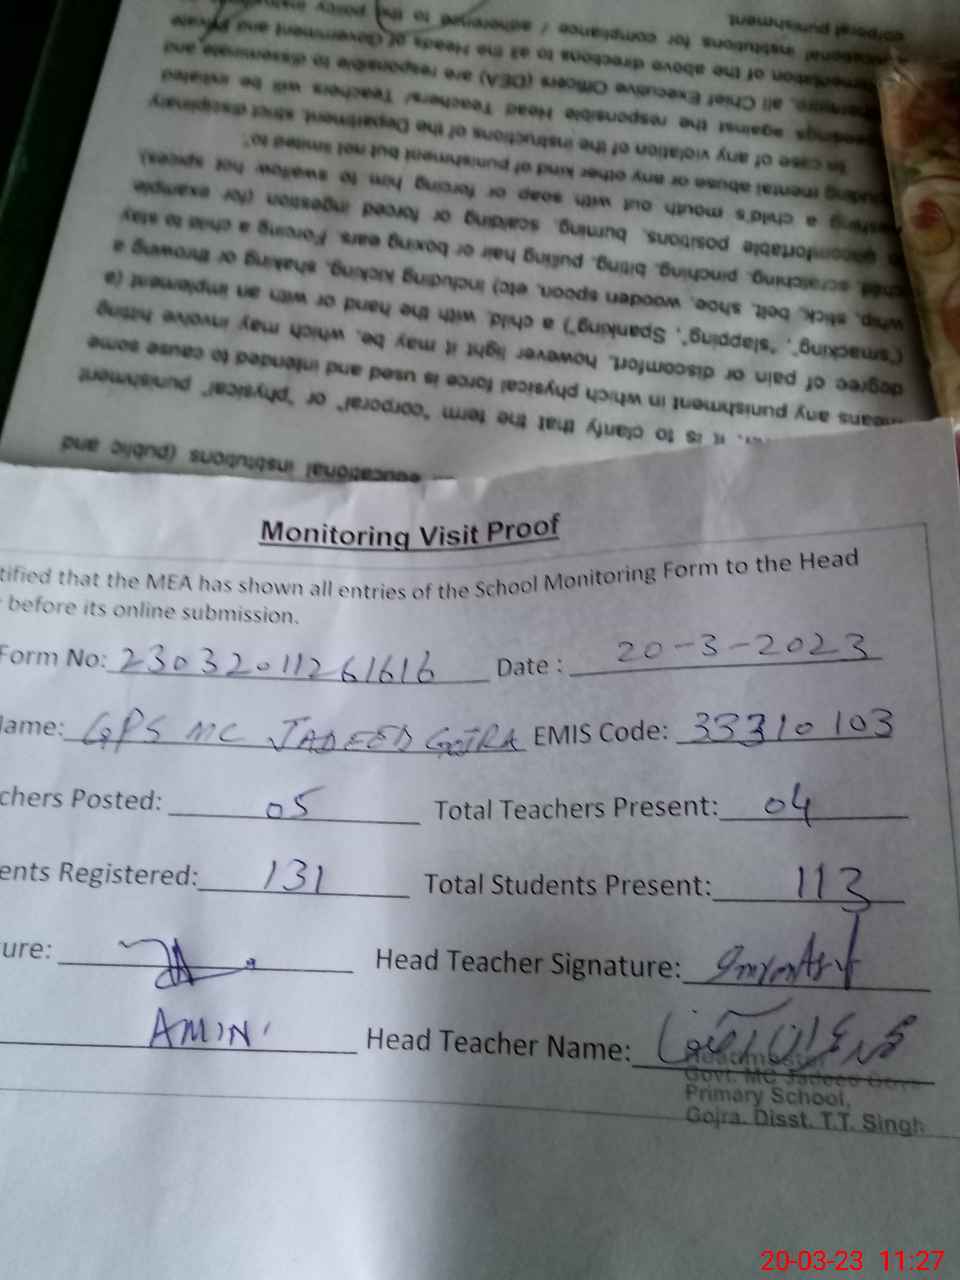 corporal punishment.
educational institutions for compliance / adherence to the policy
implementation of the above directions to all the Heads of Government and Private
all Chief Executive Officers (DEA) are responsible to disseminate and
against the responsible Head Teacher/ Teachers will be initiated
In case of any violation of the instructions of the Department, strict disciplinary
including mental abuse or any other kind of punishment but not limited to".
washing a child's mouth out with soap or forcing him to swallow hot spices)
uncomfortable positions, burning, scalding or forced ingestion (for example
child, scratching, pinching, biting, pulling hair or boxing ears. Forcing a child to stay
whip, stick, belt, shoe, wooden spoon, etc) including kicking, shaking or throwing a
("smacking", "slapping", Spanking") a child, with the hand or with an implement (a
degree of pain or discomfort, however light it may be, which may involve hitting
means any punishment in which physical force is used and intended to cause some
it is to clarify that the term "corporal" or "physical" punishment
educational institutions (public and
Monitoring Visit Proof
tified that the MEA has shown all entries of the School Monitoring Form to the Head
before its online submission.
Form No: 23032011261616 Date : 20-3-2023
Name: GPS MC JADEED GOJRA EMIS Code: 33310103
chers Posted: 05 Total Teachers Present: 04
ents Registered: 131 Total Students Present: 113
ure: Head Teacher Signature:
AMIN Head Teacher Name:
Headmaster
Govt. MC Jadeed Boys
Primary School,
Gojra. Disst. T.T. Singh
20-03-23 11:27